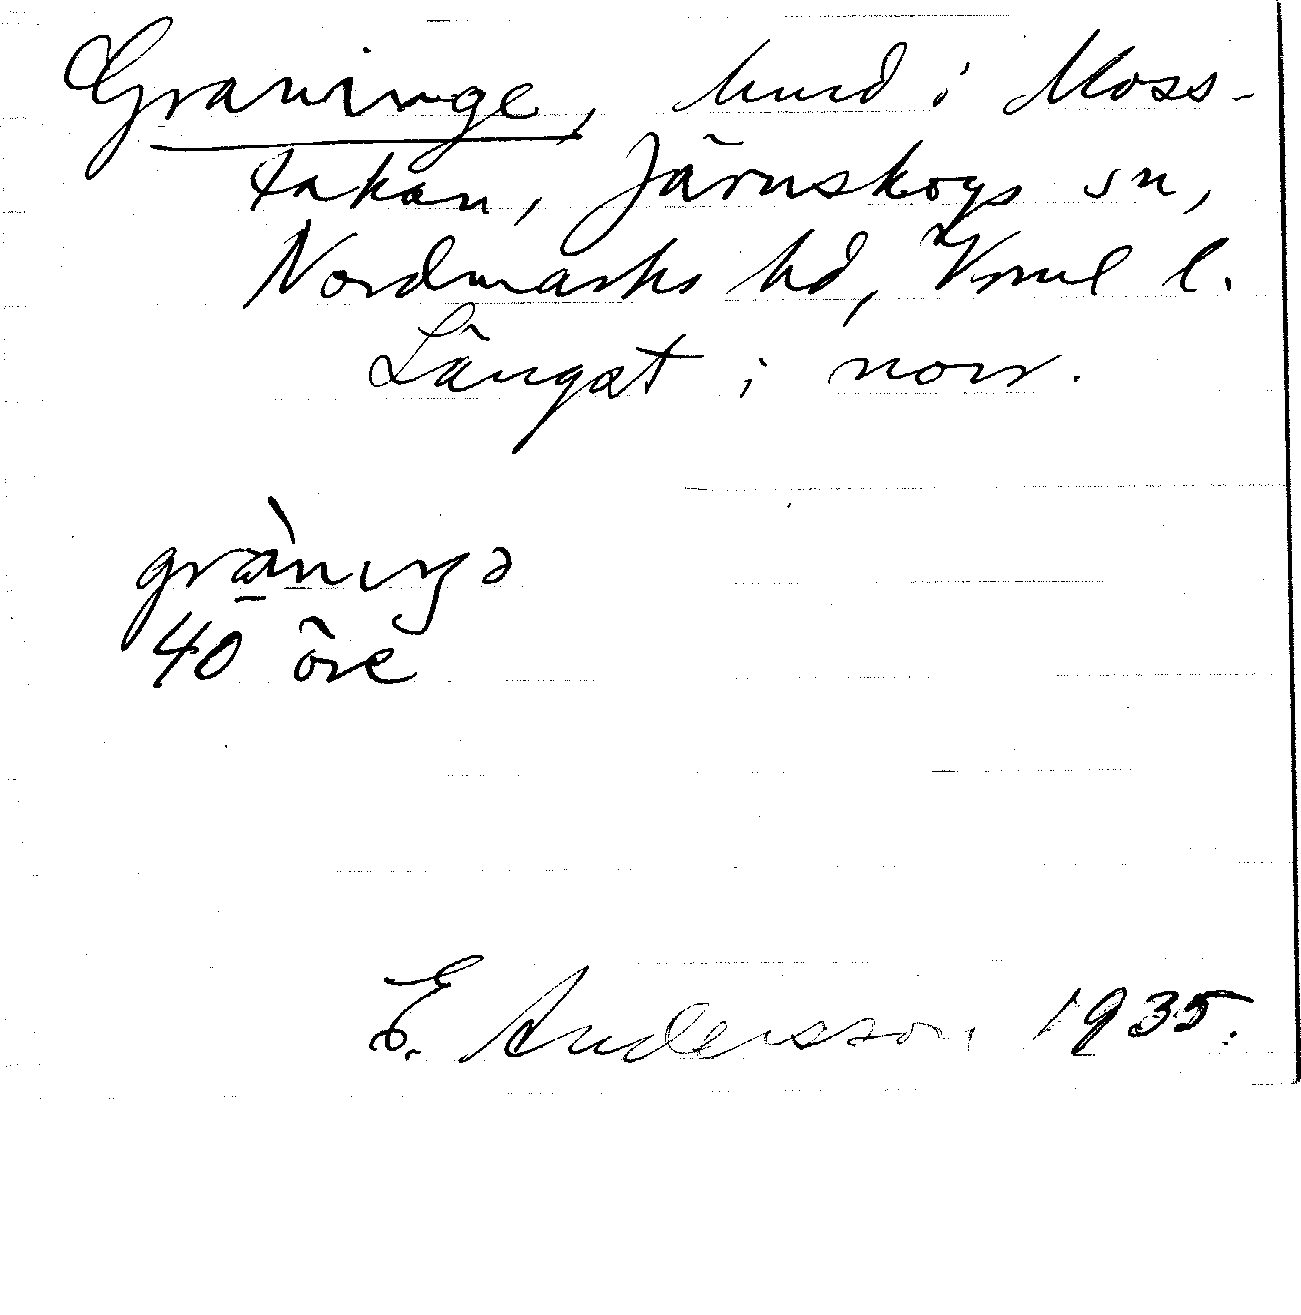 Graninge, hmd i Moss-
takan, Järnskogs sn,
Nordmarks hd, Vrml l.
Längst i norr.
grànıŋə
40 öre
E. Andersson 1935.